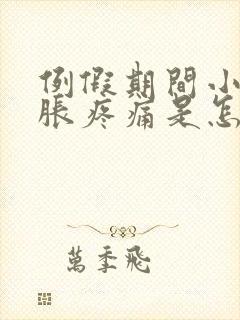 例假期間小
脹疼痛是怎
萬季飛